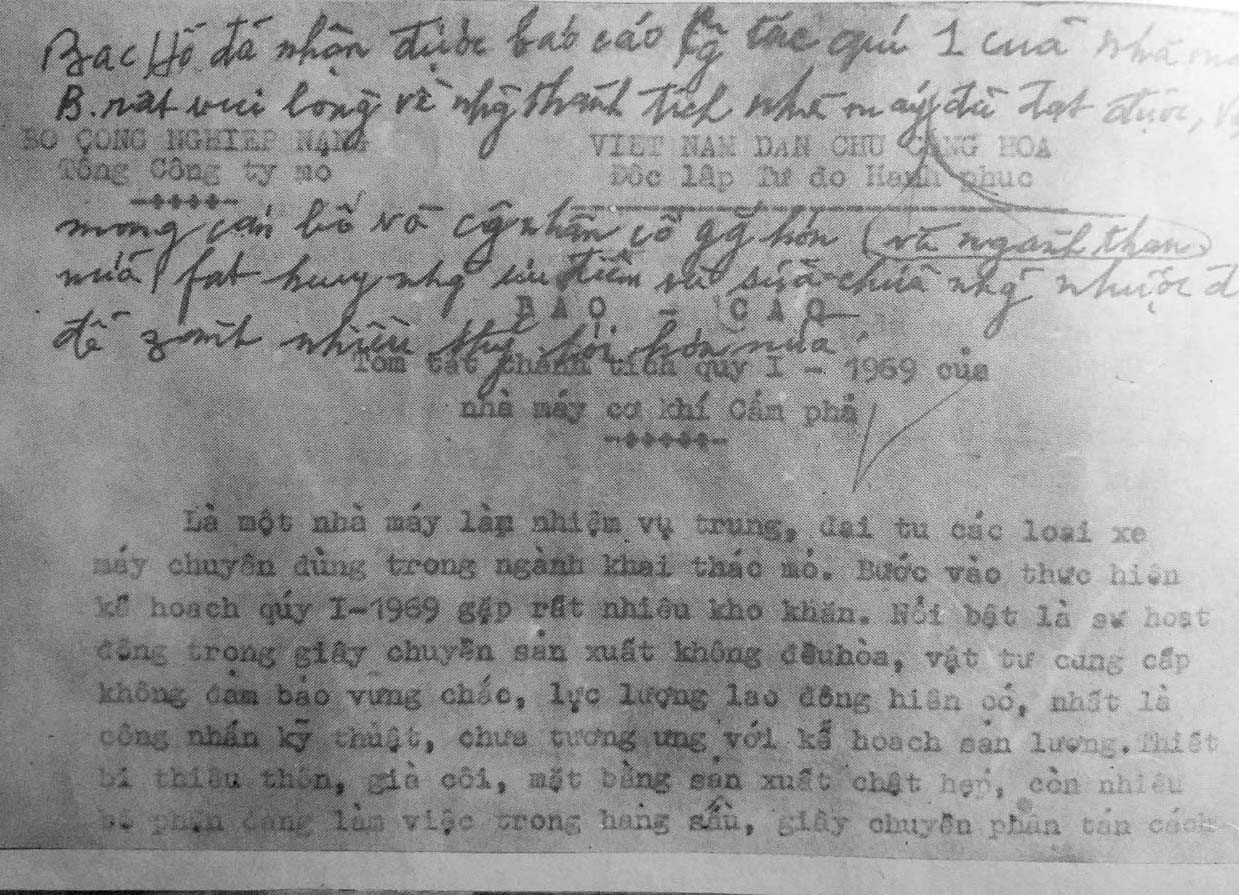 Bac Hồ đã nhận được báo cáo Cg tác quí 1 của nhà
B. rất vui lòng về nhg thành tích nhà máy đã đạt được,
BỘ CÔNG NGHIỆP NẶNG VIỆT NAM DÂN CHỦ CỘNG HÒA
Tổng Công ty mỏ Độc lập Tự do Hạnh phúc
mong cán bộ và cg nhân cố gg hơn (và ngành than)
nữa, fát huy nhg ưu điểm và sửa chữa nhg nhược đ
BAO - CAO
để zành nhiều thg lợi hơn nữa.
Tóm tắt thành tích quý I - 1969 của
nhà máy cơ khí Cẩm phả
Là một nhà máy làm nhiệm vụ trung, đại tu các loại xe
máy chuyên dùng trong ngành khai thác mỏ. Bước vào thực hiện
kế hoạch qúy I-1969 gặp rất nhiều kho khăn. Nổi bật là sự hoạt
động trong giây chuyền sản xuất không đêuhòa, vật tư cung cấp
không đảm bảo vưng chắc, lực lượng lao động hiện có, nhất là
công nhân kỹ thuật, chưa tương ưng với kế hoạch sản lượng.Thiết
bị thiếu thốn, già cỗi, mặt bằng sản xuất chật hẹp, còn nhiều
bộ phận đang làm việc trong hang sâu, giây chuyền phân tán cách